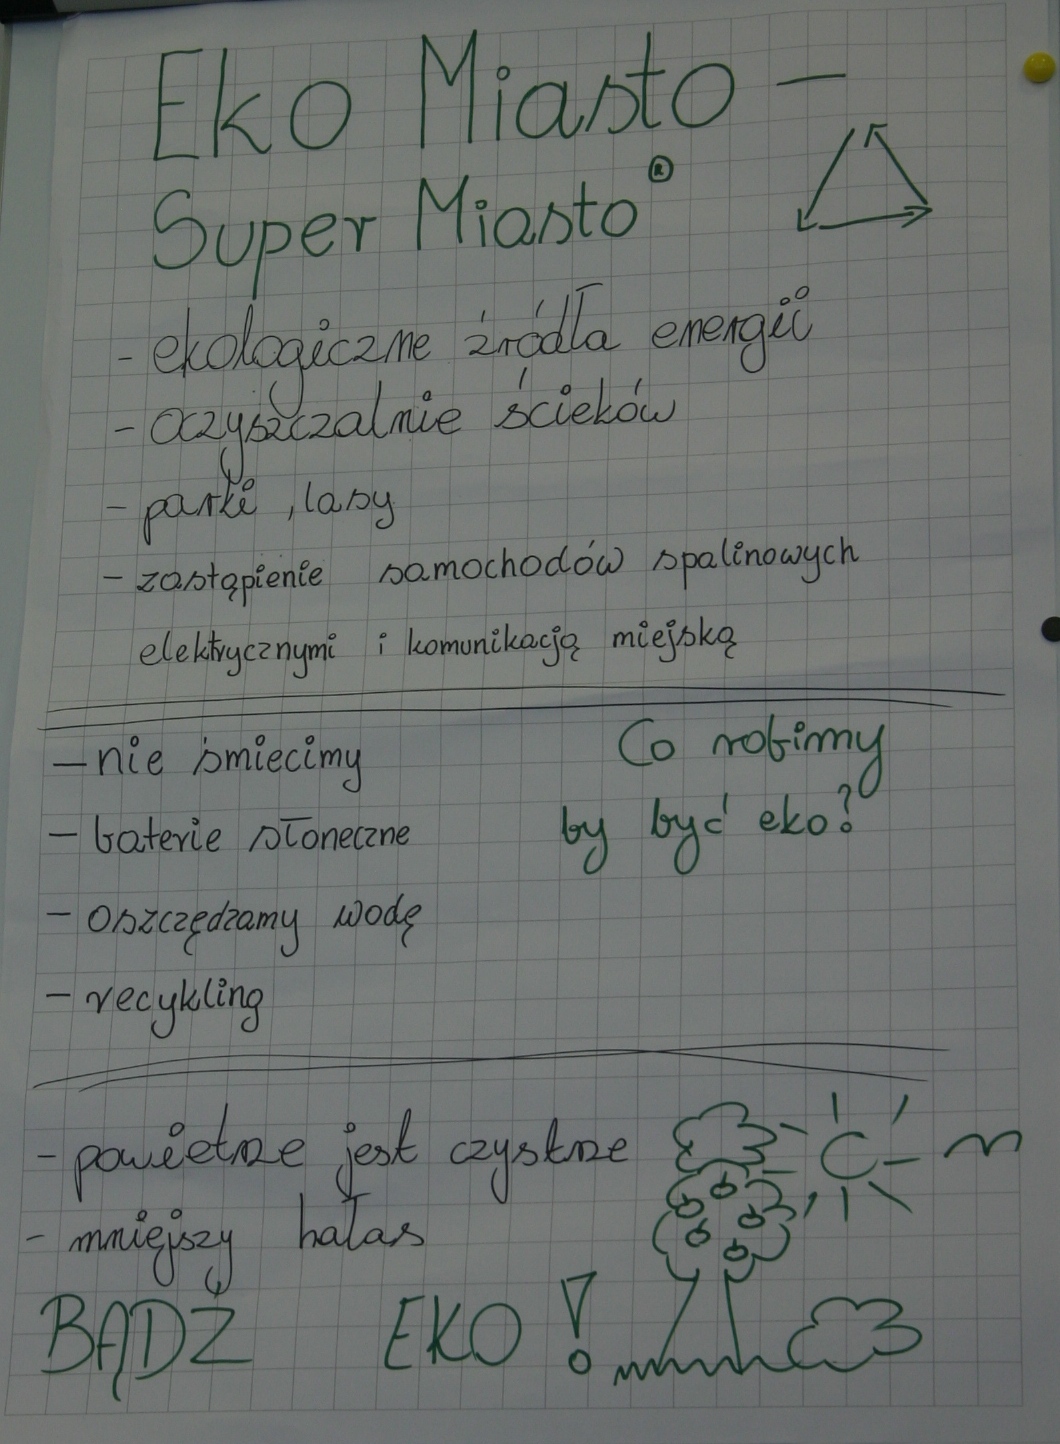 Eko Miasto –
Super Miasto ®
- ekologiczne źródła energii
- oczyszczalnie ścieków
- parki, lasy
- zastąpienie samochodów spalinowych
elektrycznymi i komunikacją miejską
Co robimy
by być eko?
- nie śmiecimy
- baterie słoneczne
- oszczędzamy wodę
- recykling
- powietrze jest czystrze
- mniejszy hałas
BĄDŹ EKO!